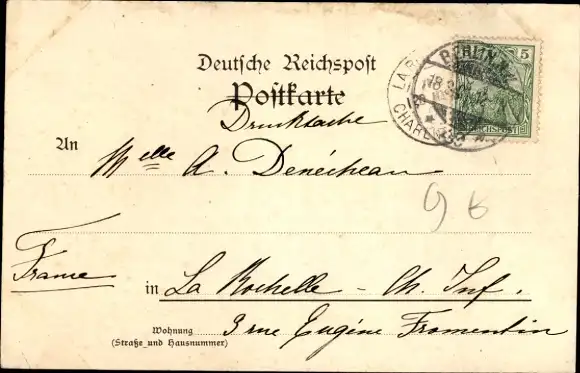 Deutsche Reichspost
Postkarte
Drucksache
An Melle A. Denécheau
France
in La Rochelle - Ch. Inf.
Wohnung 3 rue Eugéne Fromentin
(Straße und Hausnummer)
5
BERLIN
REICHSPOST
9 6